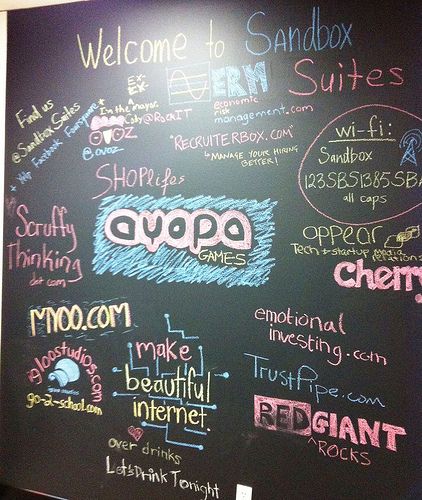 Welcome to Sandbox
Suites
Find us
@Sandbox Suites
* Yelp Facebook Foursquare *
EX-
EX-
I'm the Mayor.
Coby@RockIT
ovoz
@ovoz
ERM
economic
risk
management.com
"RECRUITERBOX.COM"
MANAGE YOUR HIRING
BETTER!
wi-fi:
Sandbox
123SBS1385SBA
all caps
SHOPlifes
Scruffy
Thinking
dot com
ayopa
GAMES
appear
Tech + startup media
relations
cherry
MYOO.COM
emotional
investing.com
igloostudios.com
go-2-school.com
make
beautiful
internet.
TrustPipe.com
RED GIANT
^ROCKS
over drinks
Let's Drink Tonight